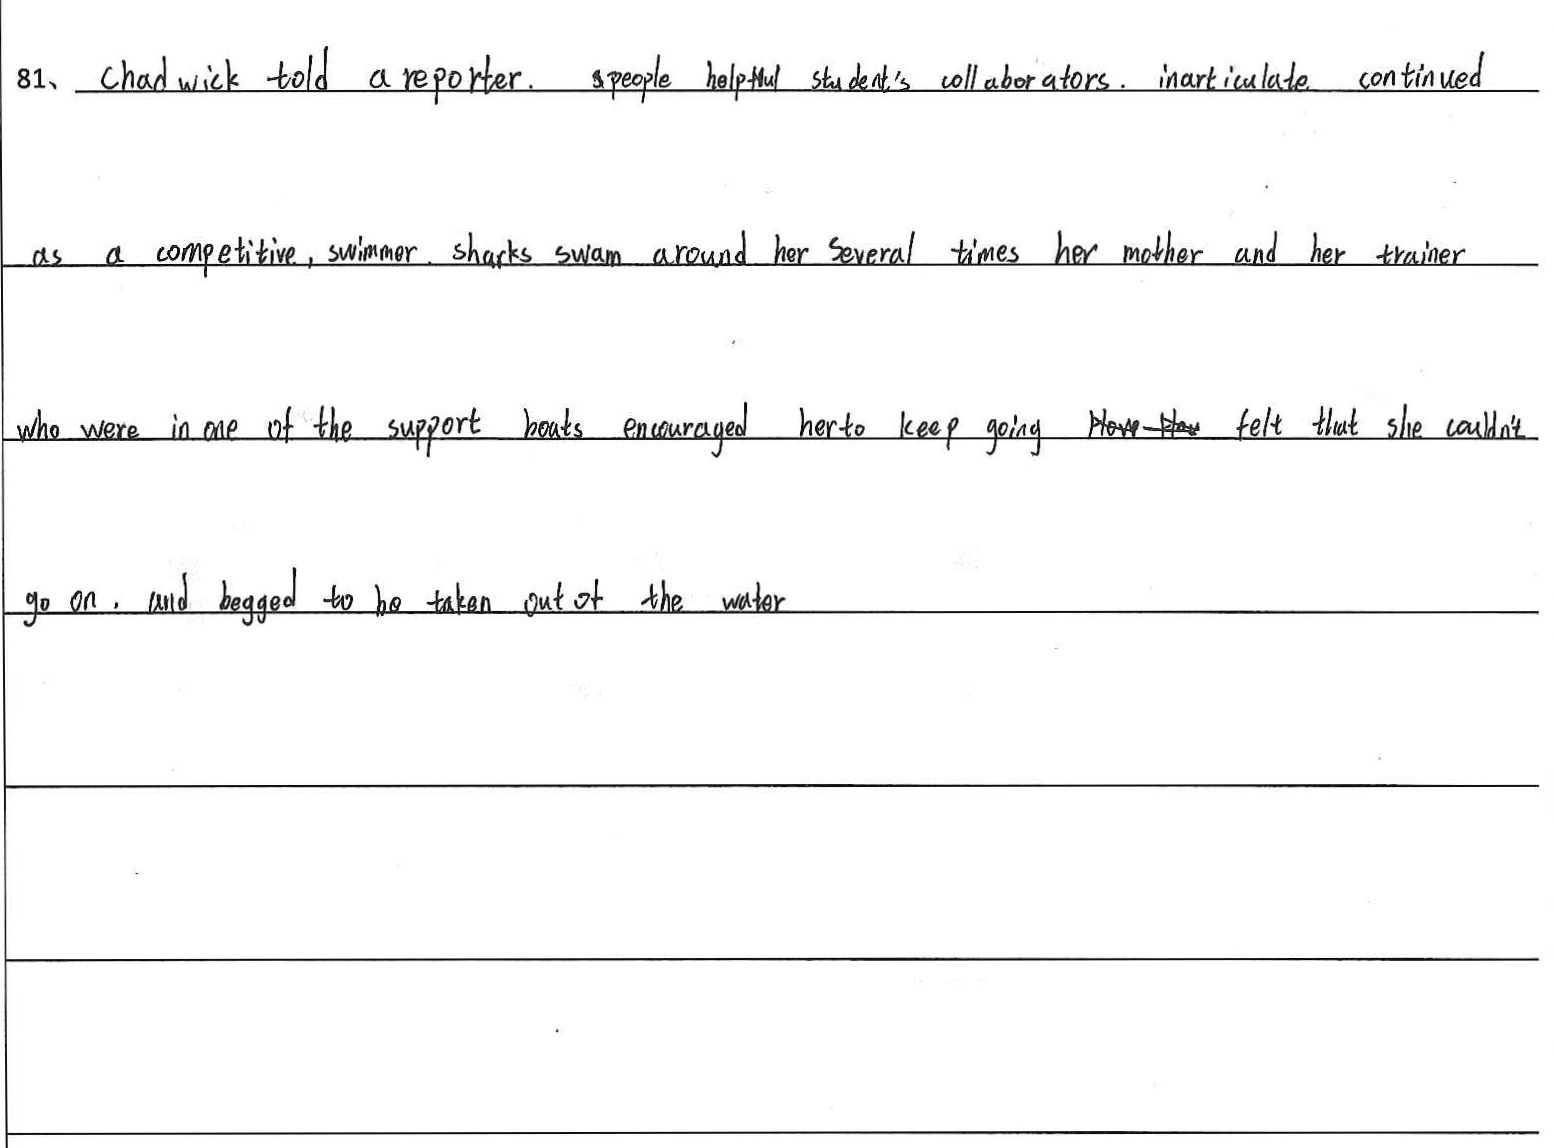 81、 Chadwick told a reporter. speople helpful student's collaborators. inarticulate continued
as a competitive, swimmer. sharks swam around her Several times her mother and her trainer
who were in one of the support boats encouraged her to keep going felt that she couldn't
go on. and begged to be taken out of the water